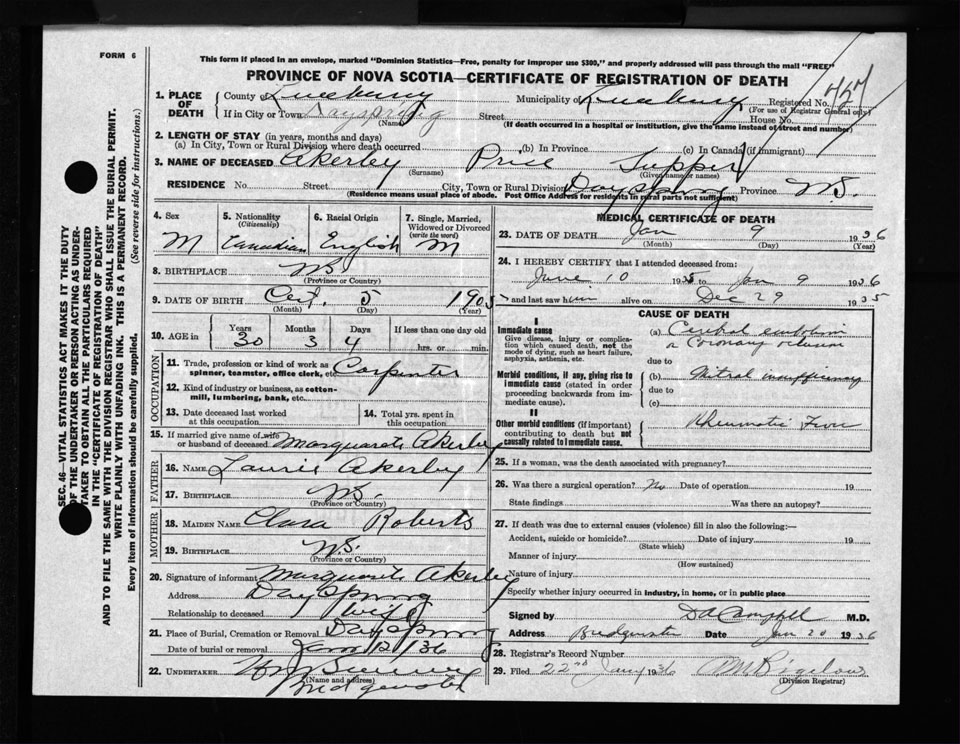 FORM 6
This form if placed in an envelope, marked "Dominion Statistics—Free, penalty for improper use $300," and properly addressed will pass through the mail "FREE"
PROVINCE OF NOVA SCOTIA—CERTIFICATE OF REGISTRATION OF DEATH
SEC. 46—VITAL STATISTICS ACT MAKES IT THE DUTY
OF THE UNDERTAKER OR PERSON ACTING AS UNDER-
TAKER TO OBTAIN ALL THE PARTICULARS REQUIRED
IN THE "CERTIFICATE OF REGISTRATION OF DEATH"
AND TO FILE THE SAME WITH THE DIVISION REGISTRAR WHO SHALL ISSUE THE BURIAL PERMIT.
WRITE PLAINLY WITH UNFADING INK. THIS IS A PERMANENT RECORD.
Every item of information should be carefully supplied. (See reverse side for instructions.)
1. PLACE OF DEATH County of Lunenburg Municipality of Lunenburg Registered No. 457
(For use of Registrar General only)
If in City or Town Dayspring Street House No.
(Name) (If death occurred in a hospital or institution, give the name instead of street and number)
2. LENGTH OF STAY (in years, months and days)
(a) In City, Town or Rural Division where death occurred (b) In Province (c) In Canada (if immigrant)
3. NAME OF DECEASED Akerley Price
(Surname) (Given name or names)
RESIDENCE No. Street City, Town or Rural Division Dayspring Province N.S.
(Residence means usual place of abode. Post Office Address for residents in rural parts not sufficient)
4. Sex 5. Nationality (Citizenship) 6. Racial Origin 7. Single, Married, Widowed or Divorced (write the word)
M Canadian English M
8. BIRTHPLACE NS
(Province or Country)
9. DATE OF BIRTH Oct. 5 1905
(Month) (Day) (Year)
10. AGE in Years Months Days If less than one day old
30 3 4 hrs. or min.
OCCUPATION
11. Trade, profession or kind of work as spinner, teamster, office clerk, etc. Carpenter
12. Kind of industry or business, as cotton-mill, lumbering, bank, etc.
13. Date deceased last worked at this occupation 14. Total yrs. spent in this occupation
15. If married give name of wife or husband of deceased Marguarete Akerley
FATHER
16. NAME Laurie Akerley
17. BIRTHPLACE NS.
(Province or Country)
MOTHER
18. MAIDEN NAME Clara Roberts
19. BIRTHPLACE N.S.
(Province or Country)
20. Signature of informant Marguarete Akerley
Address Dayspring
Relationship to deceased Wife
21. Place of Burial, Cremation or Removal Dayspring
Date of burial or removal Jan 12/36
22. UNDERTAKER
(Name and address)
Bridgewater
MEDICAL CERTIFICATE OF DEATH
23. DATE OF DEATH Jan 9 1936
(Month) (Day) (Year)
24. I HEREBY CERTIFY that I attended deceased from:
June 10 1935 to Jan 9 1936
and last saw him alive on Dec 29 1935
CAUSE OF DEATH
I
Immediate cause
Give disease, injury or complication which caused death, not the mode of dying, such as heart failure, asphyxia, asthenia, etc.
(a) Cerebral embolism
or Coronary occlusion
due to
Morbid conditions, if any, giving rise to immediate cause (stated in order proceeding backwards from immediate cause).
(b) Mitral insufficiency
due to
(c)
II
Other morbid conditions (if important) contributing to death but not causally related to immediate cause.
Rheumatic Fever
25. If a woman, was the death associated with pregnancy?
26. Was there a surgical operation? No Date of operation 19
State findings Was there an autopsy?
27. If death was due to external causes (violence) fill in also the following:—
Accident, suicide or homicide? Date of injury 19
(State which)
Manner of injury
(How sustained)
Nature of injury
Specify whether injury occurred in industry, in home, or in public place
Signed by D A Campbell M.D.
Address Bridgewater Date Jan 20 1936
28. Registrar's Record Number
29. Filed 22nd Jany 1936 Bigelow
(Division Registrar)